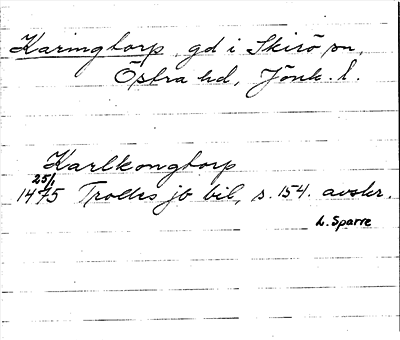 Karingtorp, gd i Skirö sn,
Östra hd, Jönk. l.
Karlkongtorp
25/1
1475 Trolles jb bil, s. 154. avskr.
L. Sparre